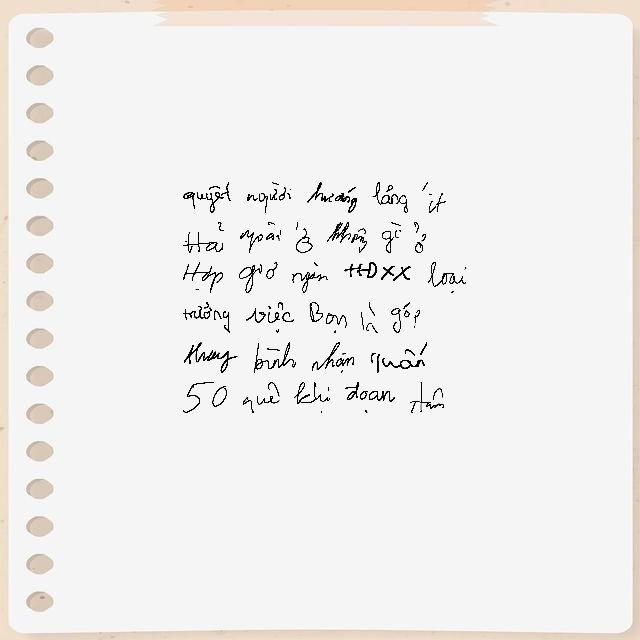 quyết người hướng lắng ít
Hải ngoài ở không gì ở
Hợp giờ ngàn HĐXX loại
trưởng việc Bọn là góp
thung bình nhận quấn
50 quê khi đoạn Hầm